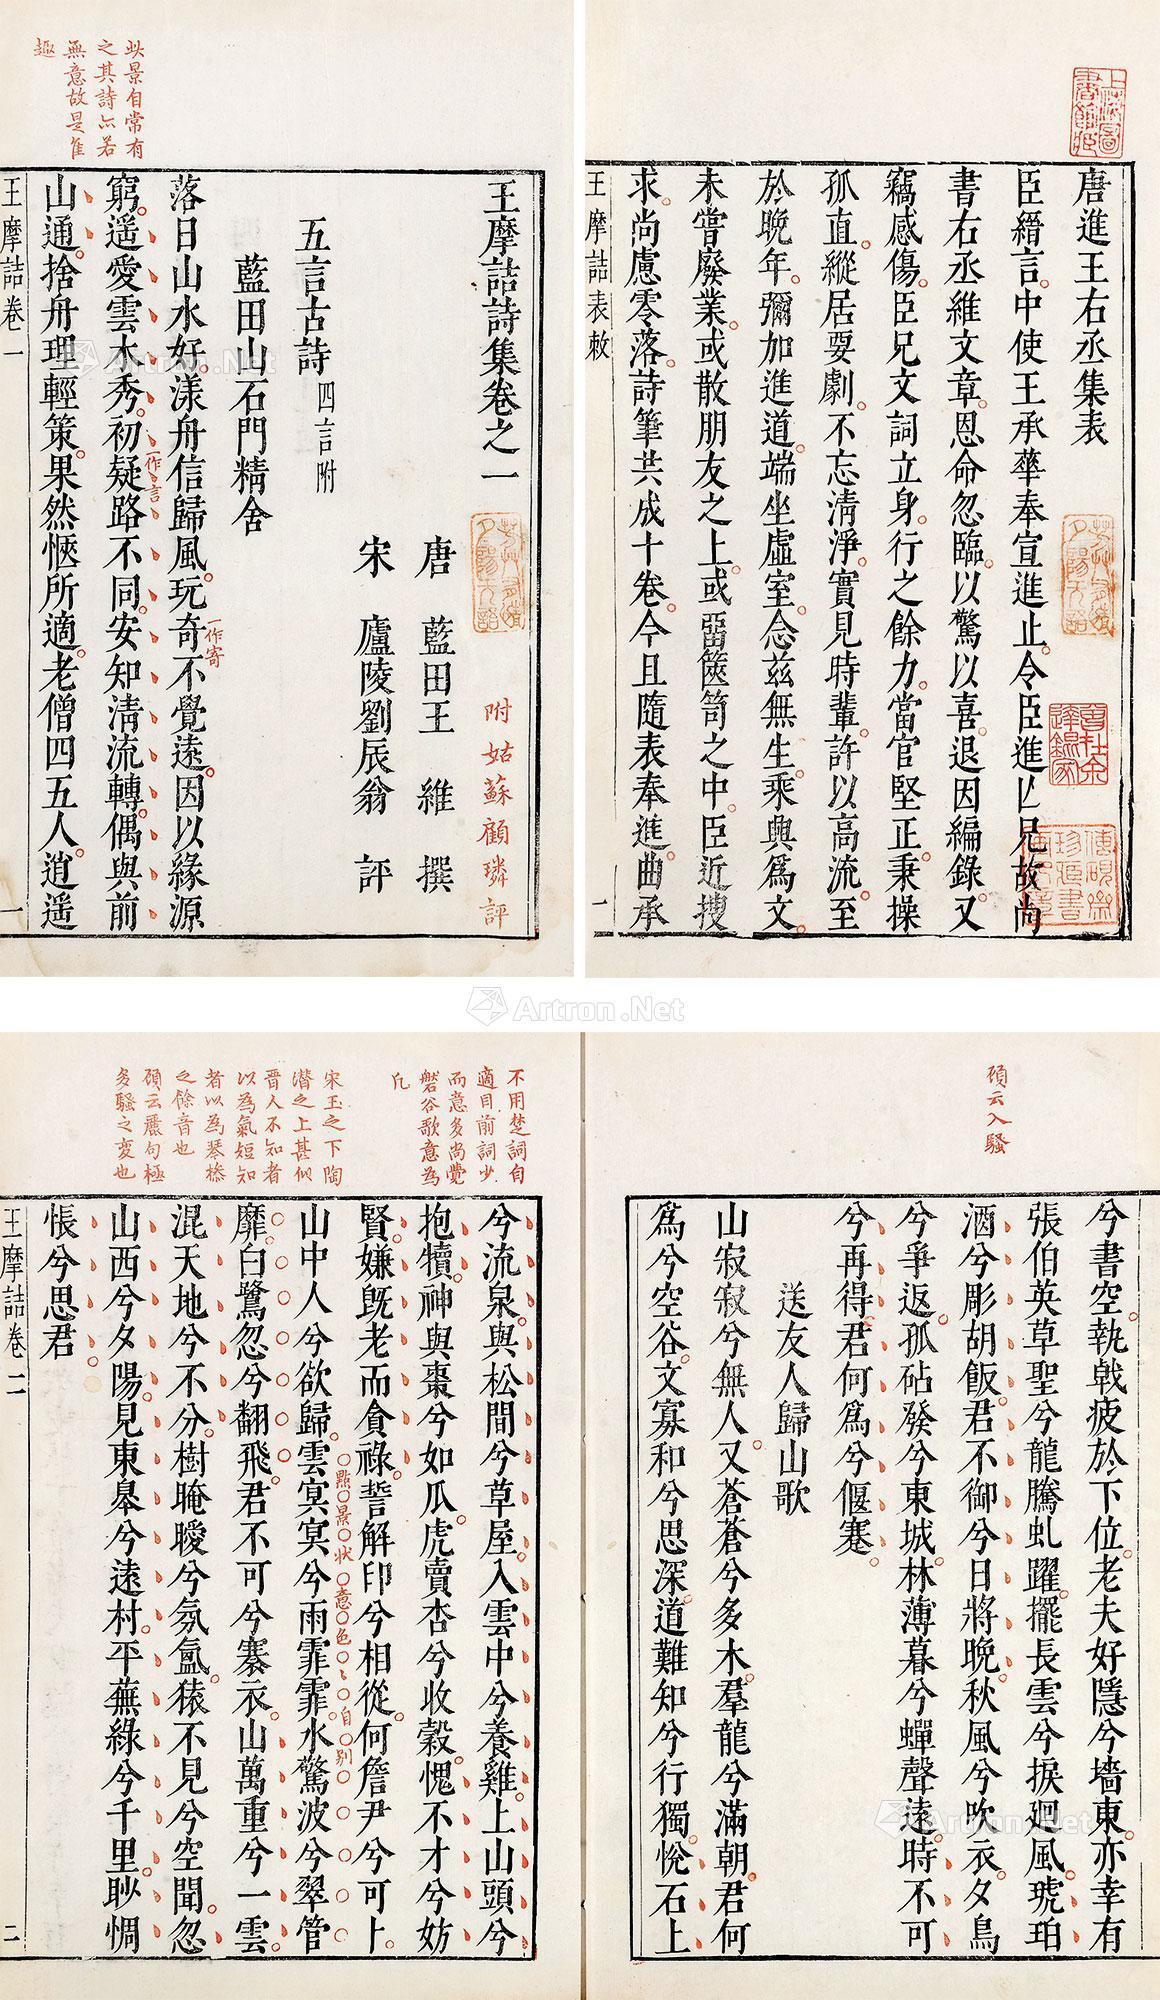 唐進王右丞集表
臣縉言中使王承華奉宣進止令臣進亡兄故尚
書右丞維文章恩命忽臨以驚以喜退因編錄又
竊感傷臣兄文詞立身行之餘力當官堅正秉操
孤直縱居要劇不忘清淨實見時輩許以高流至
於晚年彌加進道端坐虛室念茲無生乘興爲文
未嘗廢業或散朋友之上或畱篋笥之中臣近搜
求尚慮零落詩筆共成十卷今且隨表奉進曲承
王摩詰表敕
一
王摩詰詩集卷之一
唐 藍田王 維 撰
宋 廬陵劉辰翁 評
附姑蘇顧璘評
五言古詩 四言附
藍田山石門精舍
落日山水好漾舟信歸風玩奇不覺遠因以緣源
一作寄
窮遥愛雲木秀初疑路不同安知清流轉偶與前
一作言
山通捨舟理輕策果然愜所適老僧四五人逍遥
王摩詰卷一
一
此景自常有
之其詩亦若
無意故是佳
趣
Artron.Net
顾云入騷
兮書空執戟疲於下位老夫好隱兮墻東亦幸有
張伯英草聖兮龍騰虬躍擺長雲兮捩廻風琥珀
酒兮彫胡飯君不御兮日將晚秋風兮吹衣夕鳥
兮爭返孤砧發兮東城林薄暮兮蟬聲遠時不可
兮再得君何爲兮偃蹇
送友人歸山歌
山寂寂兮無人又蒼蒼兮多木羣龍兮滿朝君何
爲兮空谷文寡和兮思深道難知兮行獨悅石上
不用楚詞自
適目前詞少
而意多尚覺
盤谷歌意為
凡
宋玉之下陶
潜之上甚似
晉人不知者
以為氣短知
者以為琴操
之餘音也
顾云麗句極
多騷之変也
兮流泉與松間兮草屋入雲中兮養雞上山頭兮
抱犢神與棗兮如瓜虎賣杏兮收穀愧不才兮妨
賢嫌旣老而貪祿誓解印兮相從何詹尹兮可卜
點景状意色自別
山中人兮欲歸雲冥冥兮雨霏霏水驚波兮翠管
靡白鷺忽兮翻飛君不可兮褰衣山萬重兮一雲
混天地兮不分樹晻曖兮氛氳猿不見兮空聞忽
山西兮夕陽見東皋兮遠村平蕪綠兮千里眇惆
悵兮思君
王摩詰卷二
二